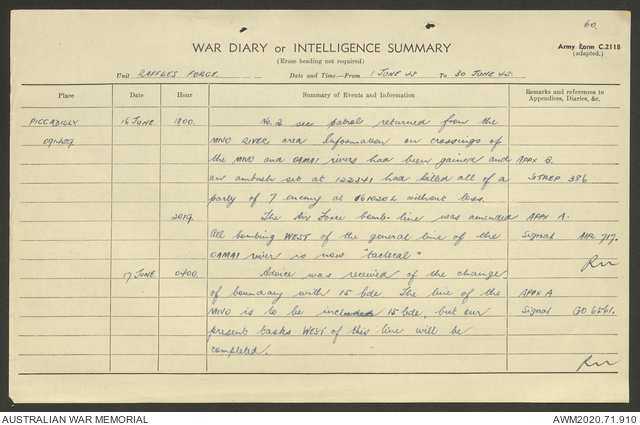 60.
WAR DIARY or INTELLIGENCE SUMMARY
Army Form C.2118
(adapted.)
(Erase heading not required)
Unit RAFFLES FORCE Date and Time—From 1 JUNE 45 To 30 JUNE 45.
Place Date Hour Summary of Events and Information Remarks and references to Appendices, Diaries, &c.
PICCADILLY 16 JUNE 1800. No. 2 sec patrol returned from the
091459 MIVO RIVER area. Information on crossings of
the MIVO and OAMAI rivers had been gained and APPX B.
an ambush set at 122341 had killed all of a SITREP 386
party of 7 enemy at 161020L without loss.
2019. The Air Force bomb-line was amended APPX A.
All bombing WEST of the general line of the Signal AIR 717.
OAMAI river is now "tactical"
17 JUNE 0400. Advice was received of the change
of boundary with 15 bde. The line of the APPX A
MIVO is to be 15 bde, but our Signal GO 6561.
present tasks WEST of this line will be
completed.
AUSTRALIAN WAR MEMORIAL
AWM2020.71.910